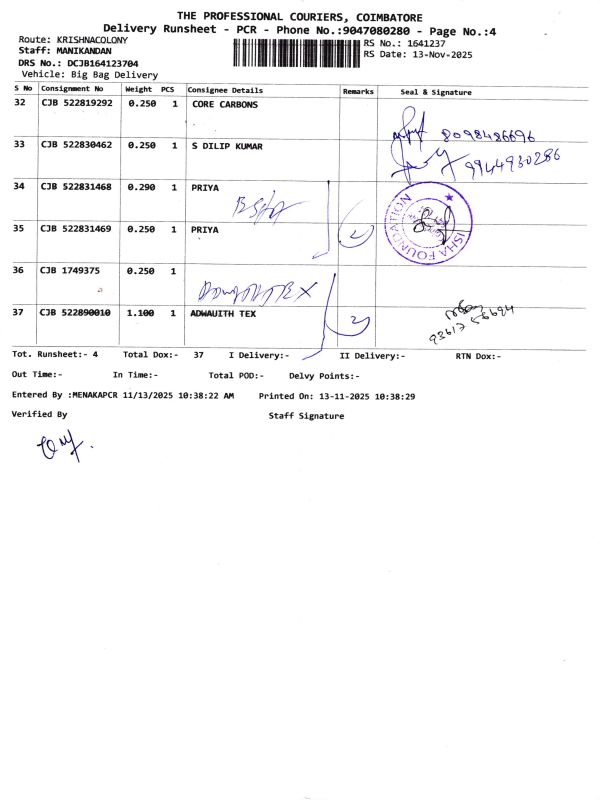 THE PROFESSIONAL COURIERS, COIMBATORE
Delivery Runsheet - PCR - Phone No.:9047080280 - Page No.:4
Route: KRISHNACOLONY
RS No.: 1641237
Staff: MANIKANDAN
RS Date: 13-Nov-2025
DRS No.: DCJB164123704
Vehicle: Big Bag Delivery
S No Consignment No Weight PCS Consignee Details Remarks Seal & Signature
32 CJB 522819292 0.250 1 CORE CARBONS
8098486696
33 CJB 522830462 0.250 1 S DILIP KUMAR
9944930286
34 CJB 522831468 0.290 1 PRIYA
ISHA FOUNDATION
35 CJB 522831469 0.250 1 PRIYA
2
36 CJB 1749375 0.250 1
37 CJB 522890010 1.100 1 ADWAUITH TEX
2
Tot. Runsheet:- 4 Total Dox:- 37 I Delivery:- II Delivery:- RTN Dox:-
Out Time:- In Time:- Total POD:- Delvy Points:-
Entered By :MENAKAPCR 11/13/2025 10:38:22 AM Printed On: 13-11-2025 10:38:29
Verified By Staff Signature